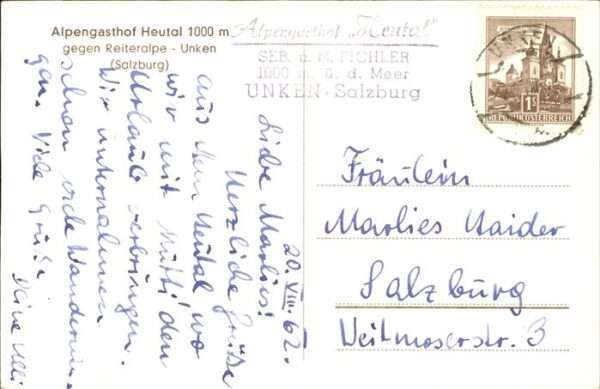 Alpengasthof Heutal 1000 m
gegen Reiteralpe - Unken
(Salzburg)
Alpengasthof „Heutal"
SEB. u. M. PICHLER
1000 m. ü. d. Meer
UNKEN - Salzburg
UNKEN
1 S
REPUBLIK ÖSTERREICH
20. VIII. 62.
Liebe Marlies!
Herzliche Grüße
aus dem Heutal, wo
wir mit Mutti den
Urlaub verbringen.
Wir unternahmen
schon viele Wanderun-
gen. Viele Grüße
Deine
Fräulein
Marlies Haider
Salzburg
Weitmoserstr. 3